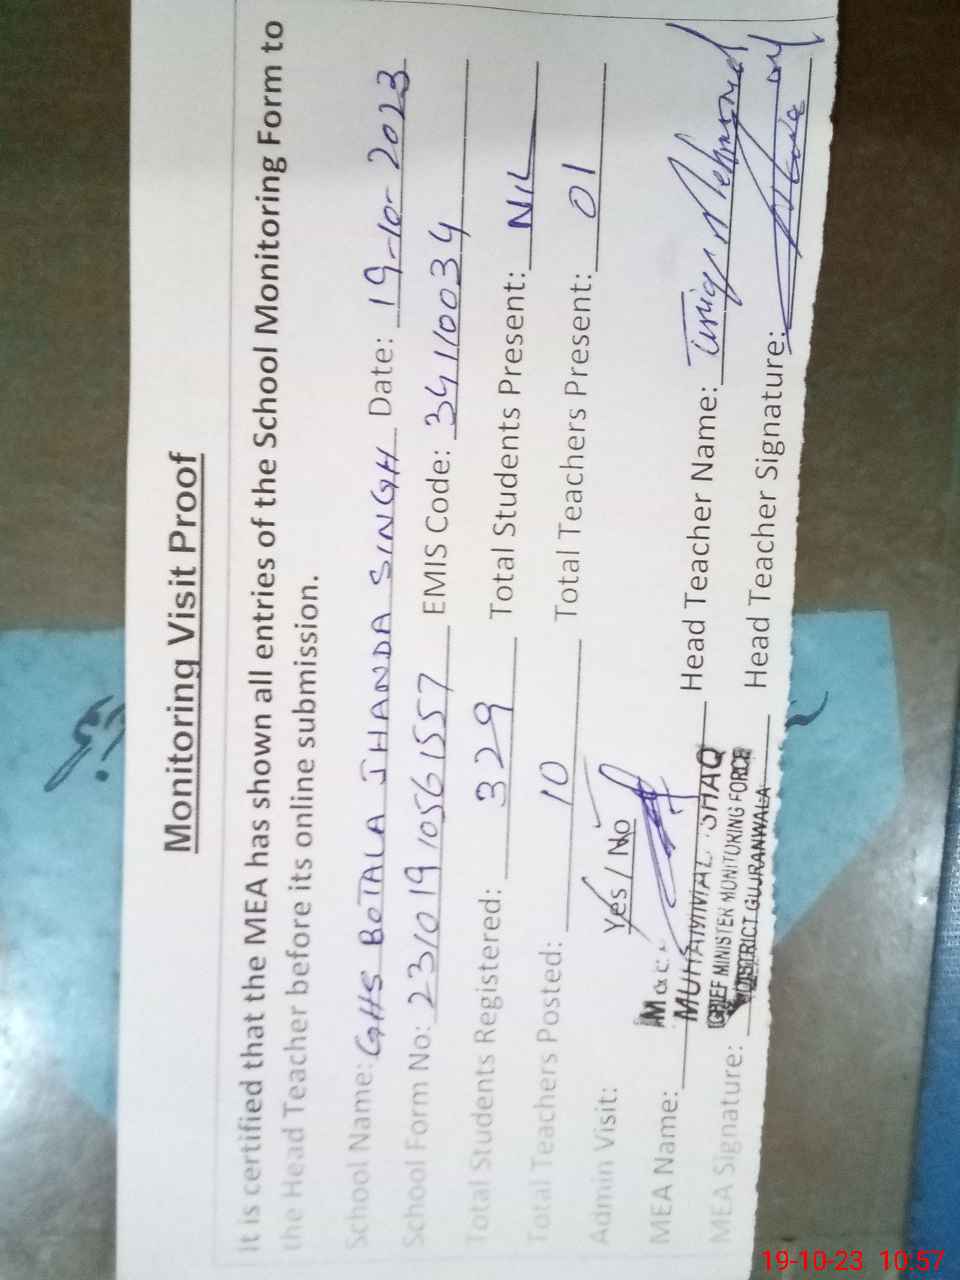 Monitoring Visit Proof
It is certified that the MEA has shown all entries of the School Monitoring Form to
the Head Teacher before its online submission.
School Name: GHS BOTALA JHANDA SINGH Date: 19-10-2023
School Form No: 23101910561557 EMIS Code: 34110034
Total Students Registered: 329 Total Students Present: NIL
Total Teachers Posted: 10 Total Teachers Present: 01
Admin Visit: Yes / No
MEA Name: MUHAMMAD Head Teacher Name: Mehmood
CHIEF MINISTER MONITORING FORCE
MEA Signature: DISTRICT GUJRANWALA Head Teacher Signature:
19-10-23 10:57